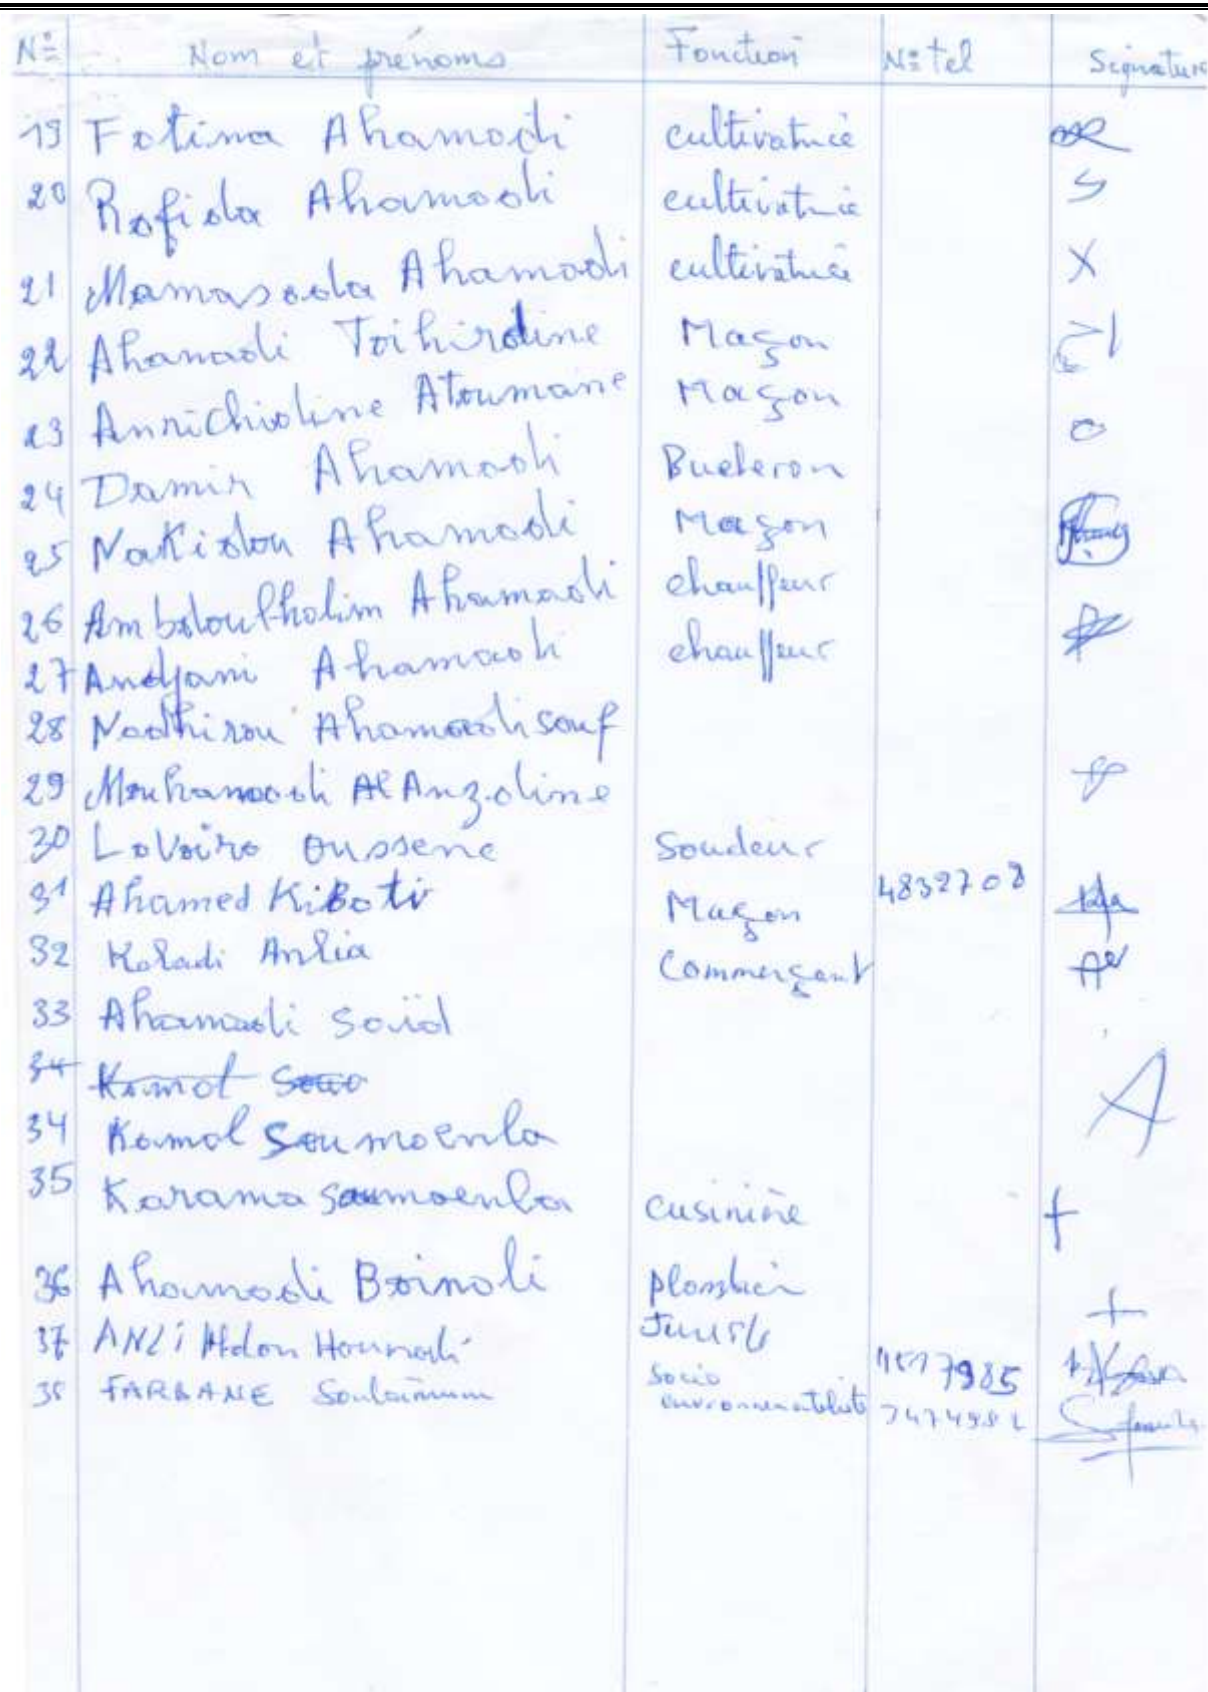 N° Nom et prénoms Fonction N° tel Signature
19 Fatima Ahamadi cultivatrice
20 Rafida Ahamadi cultivatrice
21 Mamasoda Ahamadi cultivatrice
22 Ahamadi Toihirdine Maçon
23 Anrichidine Atoumane Maçon
24 Damir Ahamadi Bucheron
25 Nakidou Ahamadi Maçon
26 Ambdoulhalim Ahamadi chauffeur
27 Andjani Ahamadi chauffeur
28 Nadhirou Ahamadi souf
29 Mouhamadi Al Anzdine
30 Lavairo oussene Soudeur
31 Ahamed Kiboti Maçon 4832708
32 Koladi Anlia Commerçant
33 Ahamadi Said
34 Kamal
34 Kamal Soumoenla
35 Karama Saumoenla cusinière
36 Ahamadi Boinali plombier
37 ANLI Houmadi 7985
38 FARDANE Soulaimana socio environnementaliste